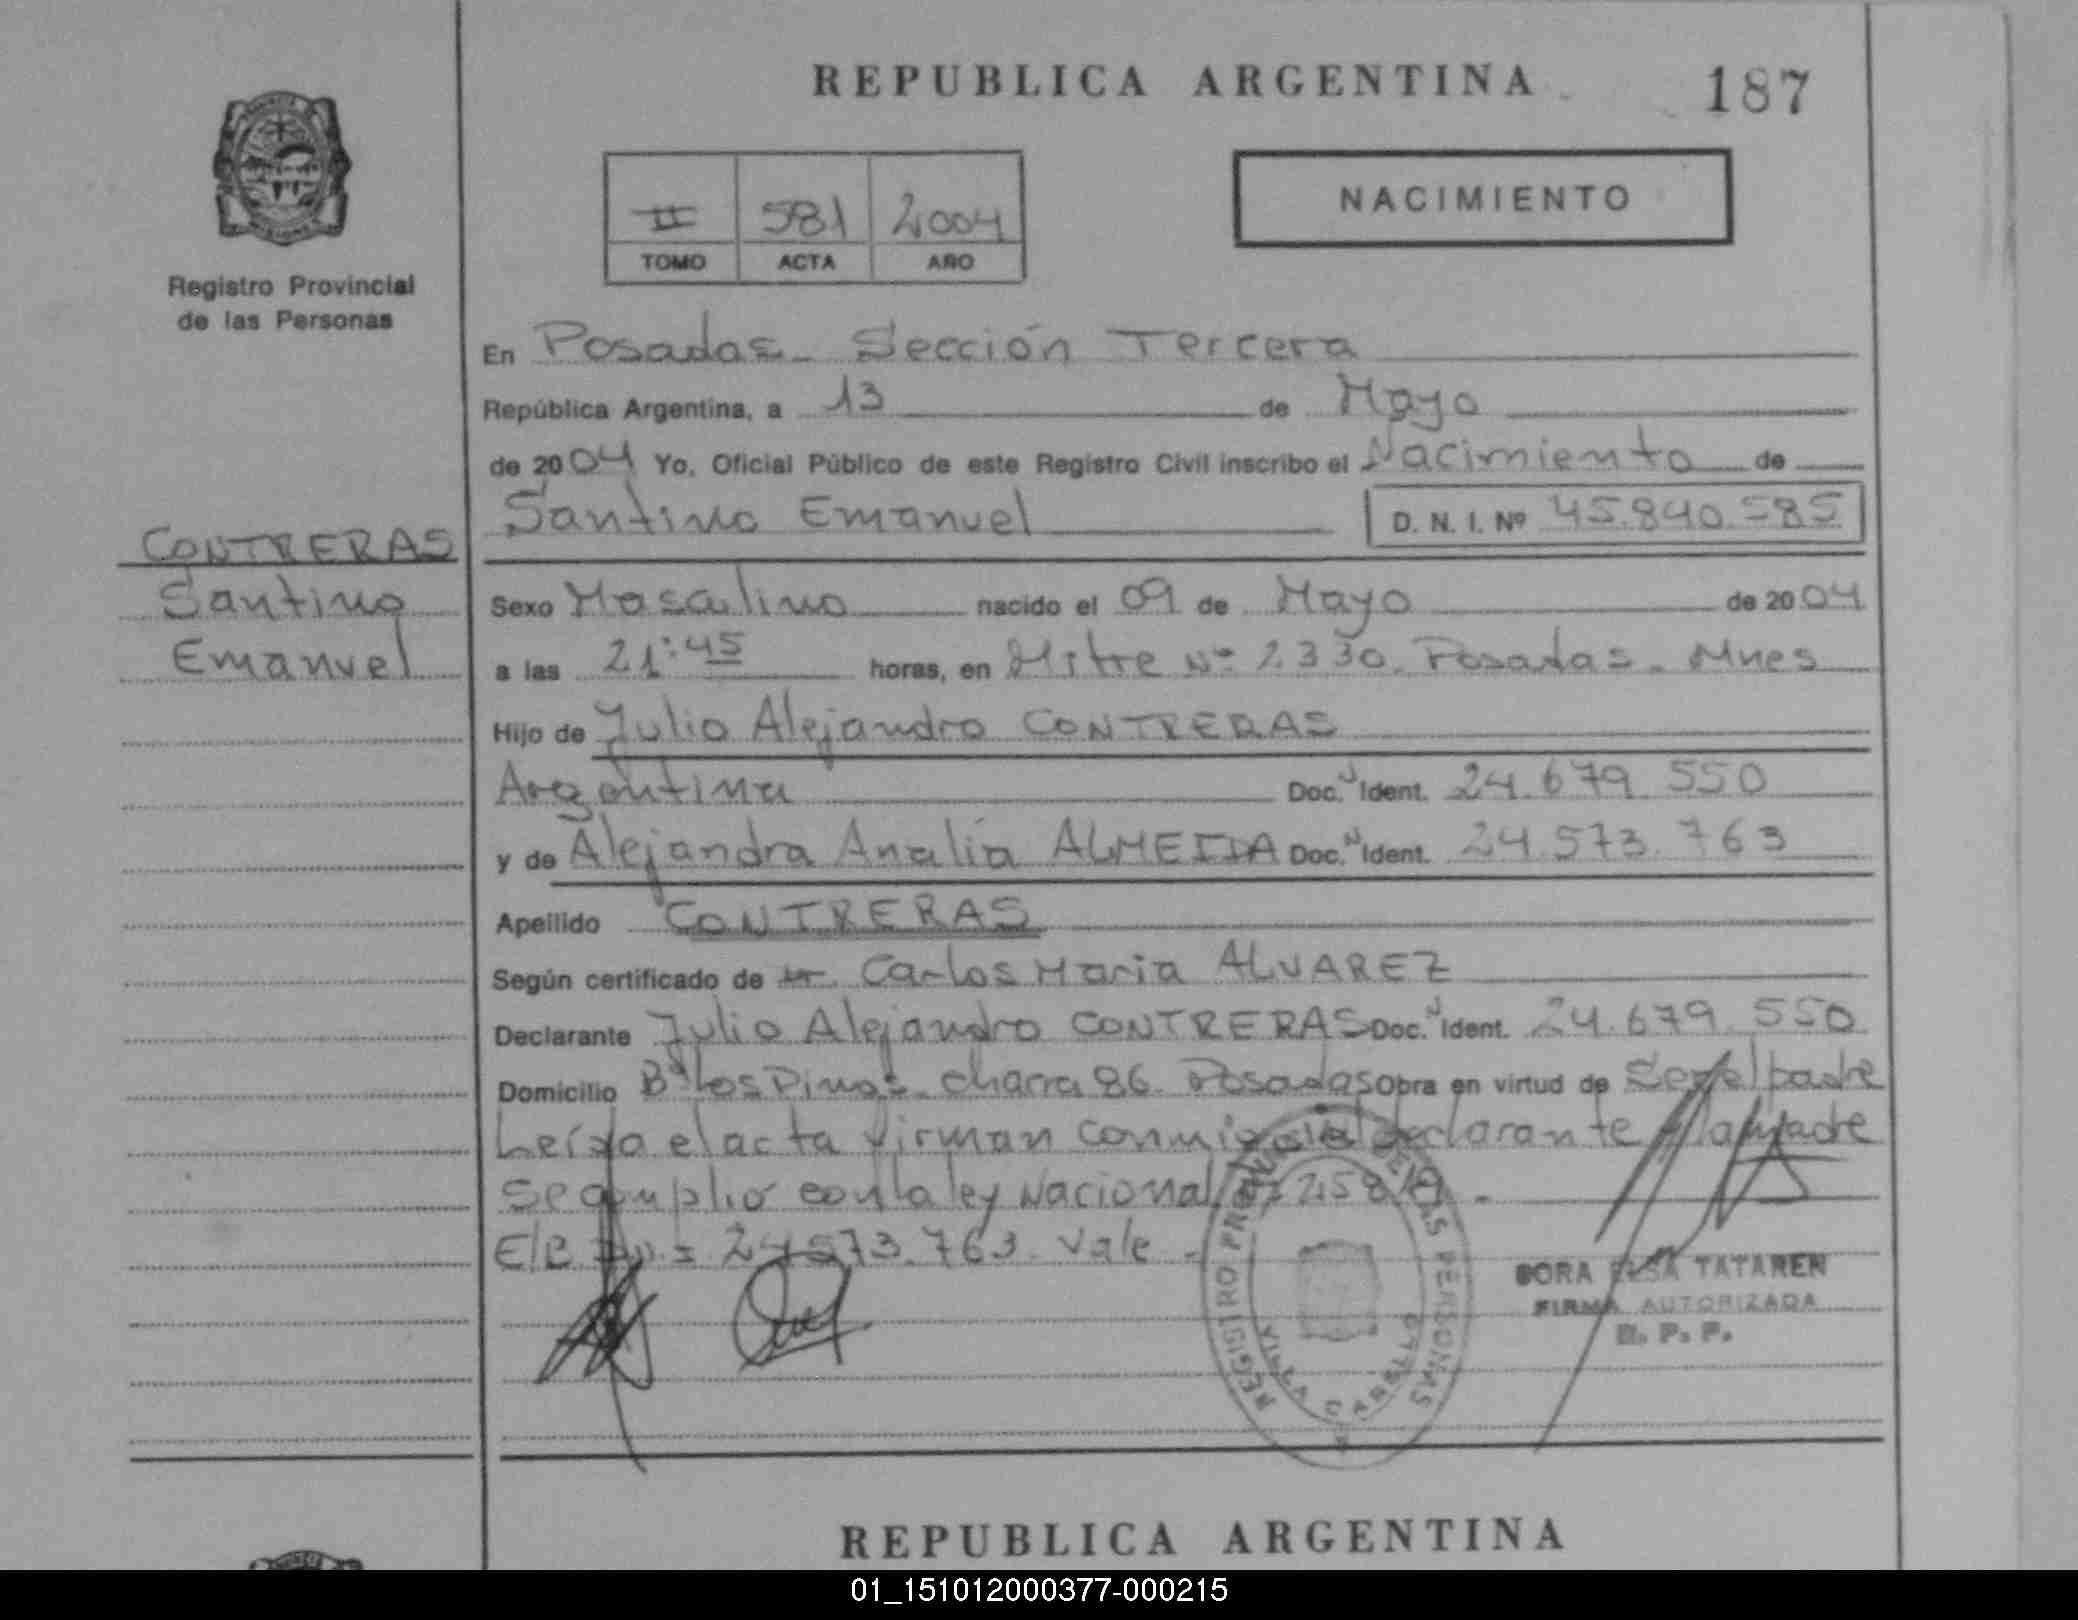 REPUBLICA ARGENTINA
187
II 581 2004
TOMO ACTA AÑO
NACIMIENTO
Registro Provincial
de las Personas
En Posadas - Sección Tercera
República Argentina, a 13 de Mayo
de 2004 Yo, Oficial Público de este Registro Civil inscribo el Nacimiento de
Santino Emanuel D. N. I. Nº 45.840.585
CONTRERAS
Santino
Emanuel
Sexo Masculino nacido el 09 de Mayo de 2004
a las 21:45 horas, en Mitre Nº 2330. Posadas - Mnes
Hijo de Julio Alejandro CONTRERAS
Argentina Doc. Ident. 24.679.550
y de Alejandra Analía ALMEIDA Doc. Ident. 24.573.763
Apellido CONTRERAS
Según certificado de Carlos Maria ALVAREZ
Declarante Julio Alejandro CONTRERAS Doc. Ident. 24.679.550
Domicilio Bº Los Pinos - charra 86. Posadas Obra en virtud de Ser el padre
Leída el acta firman conmigo el declarante y la madre
Se cumplió con la ley Nacional
E/B 24573.763. Vale -
REGISTRO PROVINCIAL DE LAS PERSONAS
VILLA CABELLO
DORA ELSA TATAREN
FIRMA AUTORIZADA
R. P. P.
REPUBLICA ARGENTINA
01_151012000377-000215